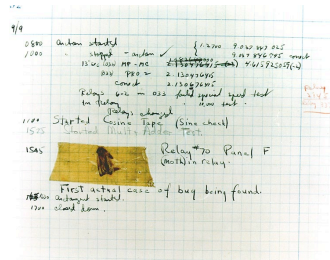 9/9
0800 Antan started
1000 " stopped - antan ✓ { 1.2700 9.037 847 025
9.037 846 995 correct
13"uc (032) MP - MC 2.130476415 4.615925059(-2)
(033) PRO 2 2.130476415
correct 2.130676415
Relays 6-2 in 033 failed special speed test
in Relay " 10.000 test.
Relays changed
1100 Started Cosine Tape (Sine check)
1525 Started Multi Adder Test.
1545 Relay #70 Panel F
(Moth) in relay.
First actual case of bug being found.
antangent started.
1700 closed down.